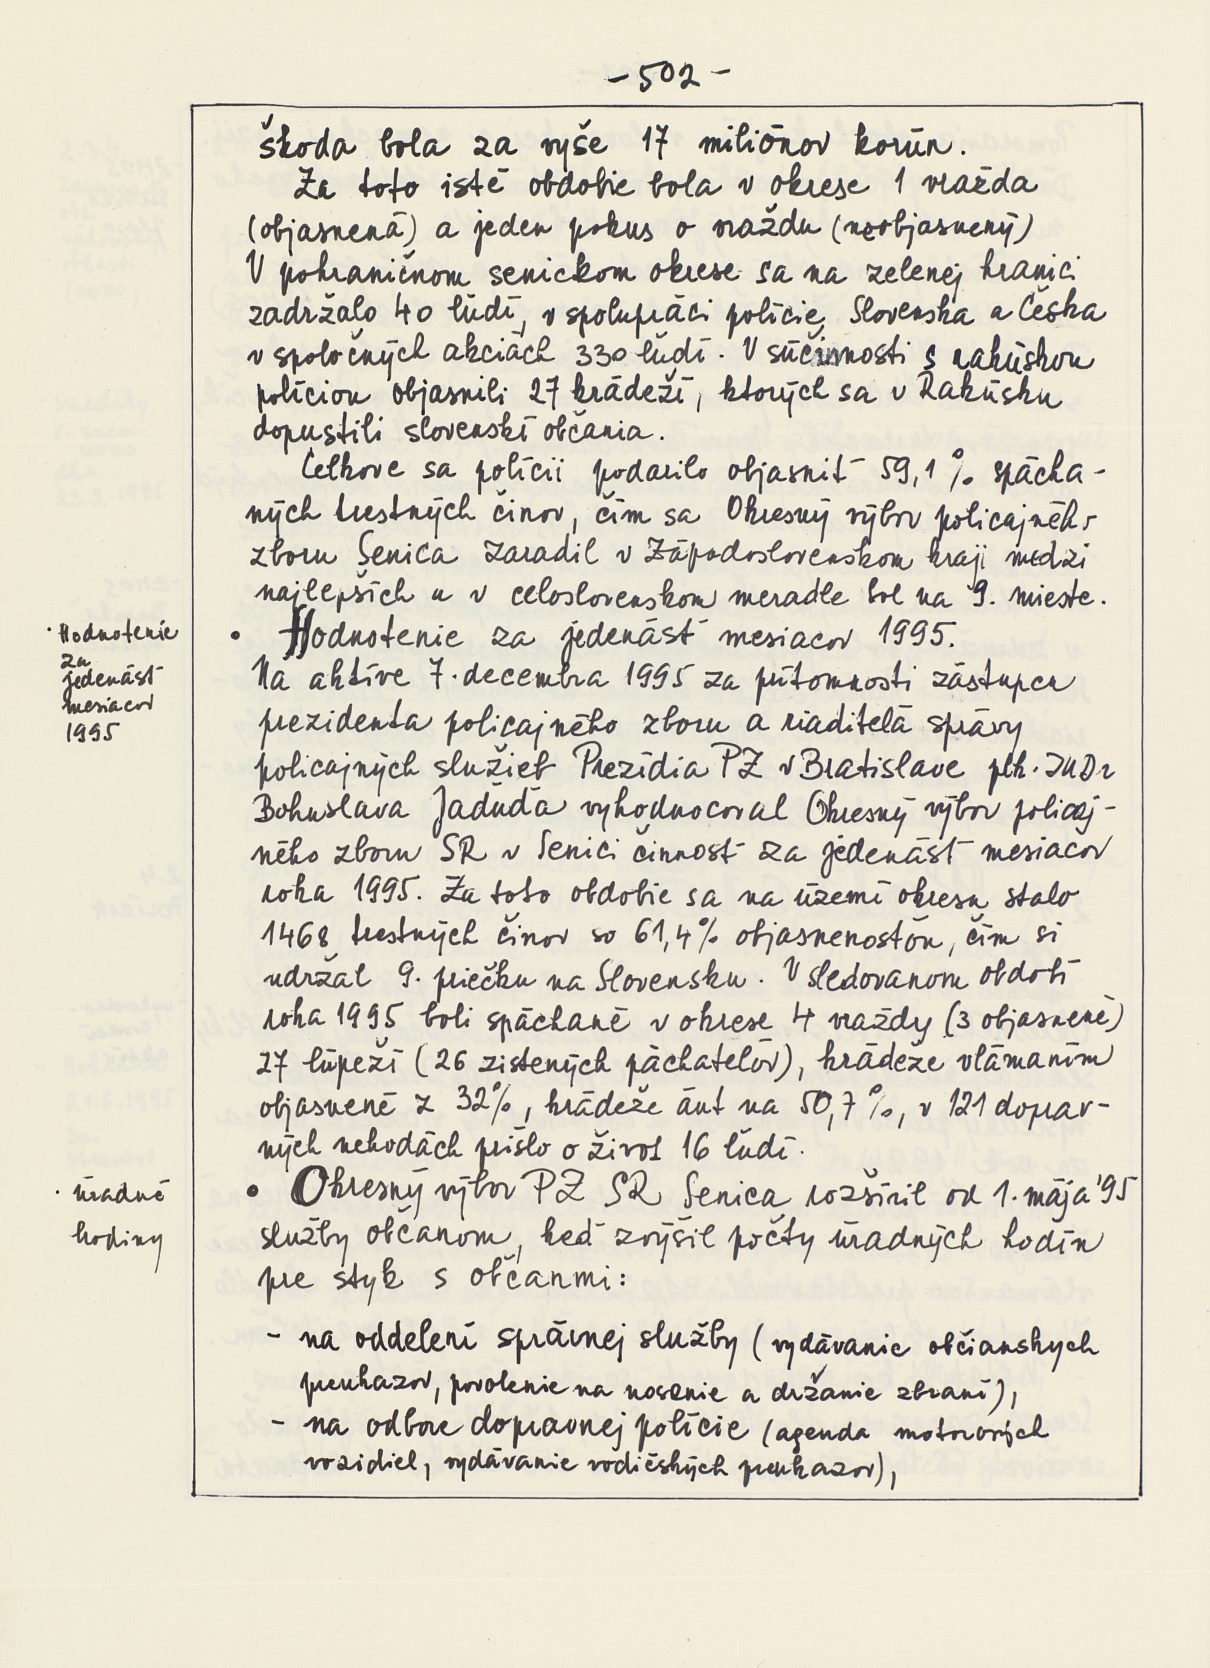 - 502 -
škoda bola za vyše 17 miliónov korún.
Za toto isté obdobie bola v okrese 1 vražda
(objasnená) a jeden pokus o vraždu (neobjasnený)
V pohraničnom senickom okrese sa na zelenej hranici
zadržalo 40 ľudí, v spolupráci polície Slovenska a Česka
v spoločných akciách 330 ľudí. V súčinnosti s rakúskou
políciou objasnili 27 krádeží, ktorých sa v Rakúsku
dopustili slovenskí občania.
Celkove sa polícii podarilo objasniť 59,1 % spácha-
ných trestných činov, čím sa Okresný výbor policajného
zboru Senica zaradil v Západoslovenskom kraji medzi
najlepších a v celoslovenskom meradle bol na 9. mieste.
· Hodnotenie
za
jedenásť
mesiacov
1995
• Hodnotenie za jedenásť mesiacov 1995.
Na aktíve 7. decembra 1995 za prítomnosti zástupcu
prezidenta policajného zboru a riaditeľa správy
policajných služieb Prezídia PZ v Bratislave plk. JUDr
Bohuslava Jaďuďa vyhodnocoval Okresný výbor policaj-
ného zboru SR v Senici činnosť za jedenásť mesiacov
roka 1995. Za toto obdobie sa na území okresu stalo
1468 trestných činov so 61,4% objasnenosťou, čím si
udržal 9. priečku na Slovensku. V sledovanom období
roka 1995 boli spáchané v okrese 4 vraždy (3 objasnené)
27 lúpeží (26 zistených páchateľov), krádeže vlámaním
objasnené z 32%, krádeže áut na 50,7%, v 121 doprav-
ných nehodách prišlo o život 16 ľudí.
· úradné
hodiny
• Okresný výbor PZ SR Senica rozšíril od 1. mája '95
služby občanom, keď zvýšil počty úradných hodín
pre styk s občanmi:
- na oddelení správnej služby (vydávanie občianskych
preukazov, povolenie na nosenie a držanie zbraní),
- na odbore dopravnej polície (agenda motorových
vozidiel, vydávanie vodičských preukazov),